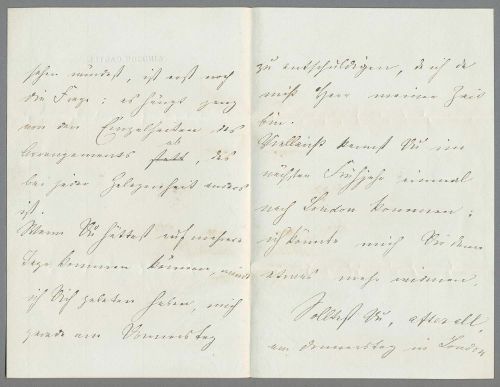 sehen würdest, ist erst noch
die Frage; es hängt ganz
von den Einzelheiten des
Arrangements ab, das
bei jeder Gelegenheit anders
ist.
Wenn Du hättest auf mehrere
Tage kommen können, würde
ich Dich gebeten haben, mich
gerade am Donnerstag
zu entschuldigen, da ich da
nicht Herr meiner Zeit
bin.
Vielleicht kannst Du im
nächsten Frühjahr einmal
nach London kommen;
ich könnte mich Dir dann
etwas mehr widmen.
Solltest Du, after all,
am Donnerstag in London